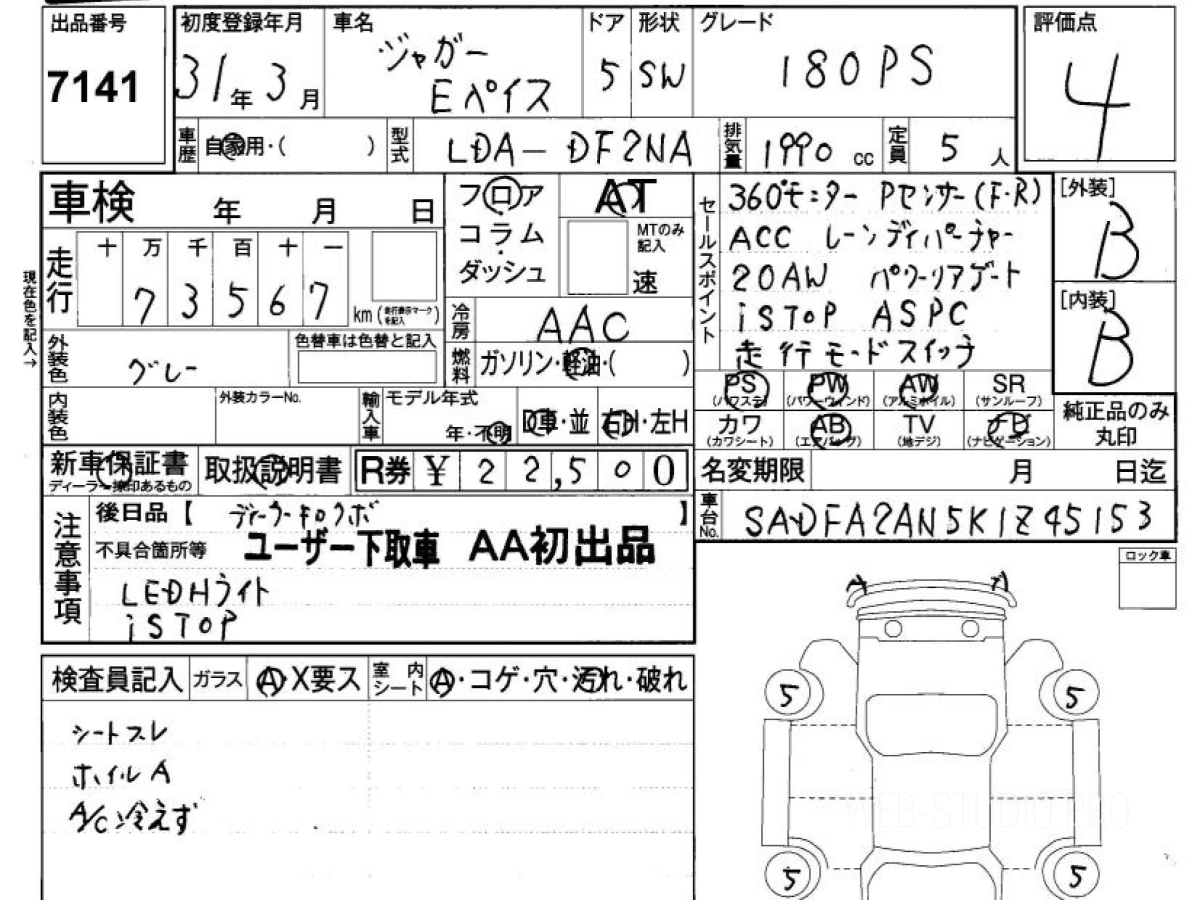 出品番号
7141
初度登録年月
31年 3月
車名
ジャガー
Eペイス
ドア
5
形状
SW
グレード
180PS
評価点
4
車歴
自家用・( )
型式
LDA-DF2NA
排気量
1990 cc
定員
5 人
車検 年 月 日
走行
十 万 千 百 十 一
7 3 5 6 7
km (走行表示マークを記入)
現在色を記入→
フロア
コラム
ダッシュ
AT
MTのみ記入
速
冷房
AAC
燃料
ガソリン・軽油・( )
外装色
グレー
色替車は色替と記入
内装色
外装カラーNo.
輸入車
モデル年式
年・不明
D車・並
右H・左H
セールスポイント
360°モニター Pセンサー(F・R)
ACC レーンディパーチャー
20AW パワーリアゲート
iSTOP ASPC
走行モードスイッチ
[外装]
B
[内装]
B
PS
(パワステ)
PW
(パワーウィンド)
AW
(アルミホイル)
SR
(サンルーフ)
カワ
(カワシート)
AB
(エアバッグ)
TV
(地デジ)
ナビ
(ナビゲーション)
純正品のみ
丸印
新車保証書
ディーラー捺印あるもの
取扱説明書
R券 ¥ 22,500
名変期限 月 日迄
車台No.
SADFA2AN5K1Z45153
注意事項
後日品【 ディーラーキロクボ 】
不具合箇所等
ユーザー下取車 AA初出品
LEDHライト
iSTOP
ロック車
検査員記入
ガラス
A・X要ス
室内シート
A・コゲ・穴・汚れ・破れ
シートスレ
ホイルA
A/C冷えず
A A
5 5
5 5
WEB-STUDIO.PRO